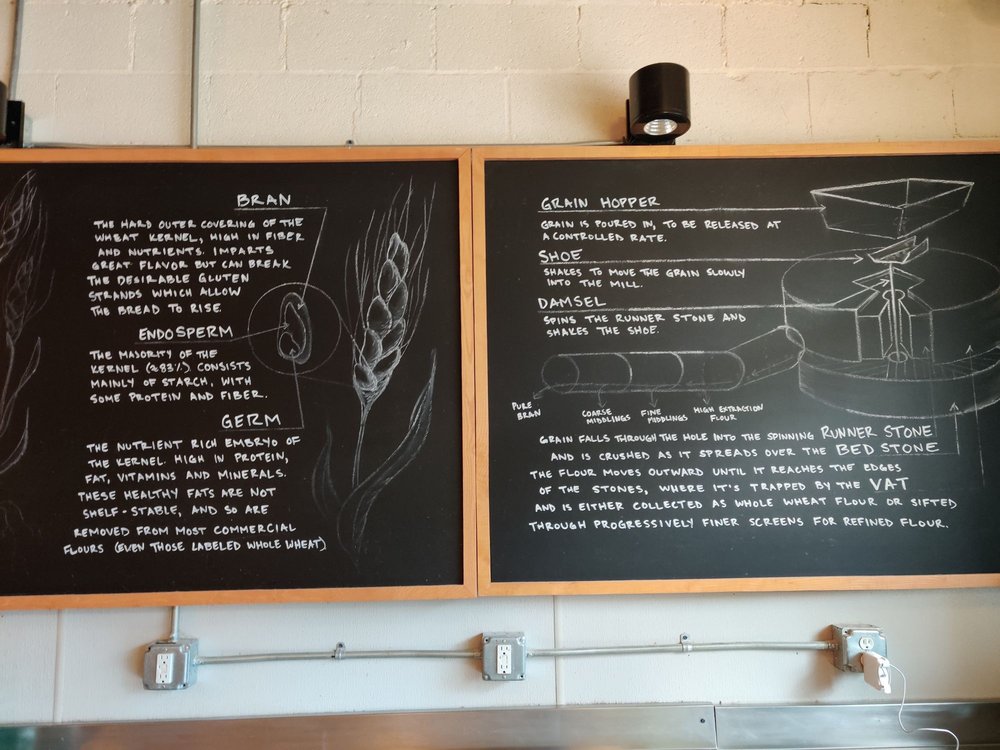 BRAN
THE HARD OUTER COVERING OF THE
WHEAT KERNEL, HIGH IN FIBER
AND NUTRIENTS. IMPARTS
GREAT FLAVOR BUT CAN BREAK
THE DESIRABLE GLUTEN
STRANDS WHICH ALLOW
THE BREAD TO RISE.
ENDOSPERM
THE MAJORITY OF THE
KERNEL (≈83%) CONSISTS
MAINLY OF STARCH, WITH
SOME PROTEIN AND FIBER.
GERM
THE NUTRIENT RICH EMBRYO OF
THE KERNEL. HIGH IN PROTEIN,
FAT, VITAMINS AND MINERALS.
THESE HEALTHY FATS ARE NOT
SHELF-STABLE, AND SO ARE
REMOVED FROM MOST COMMERCIAL
FLOURS (EVEN THOSE LABELED WHOLE WHEAT)
GRAIN HOPPER
GRAIN IS POURED IN, TO BE RELEASED AT
A CONTROLLED RATE.
SHOE
SHAKES TO MOVE THE GRAIN SLOWLY
INTO THE MILL.
DAMSEL
SPINS THE RUNNER STONE AND
SHAKES THE SHOE.
PURE
BRAN
COARSE
MIDDLINGS
FINE
MIDDLINGS
HIGH EXTRACTION
FLOUR
GRAIN FALLS THROUGH THE HOLE INTO THE SPINNING RUNNER STONE
AND IS CRUSHED AS IT SPREADS OVER THE BED STONE
THE FLOUR MOVES OUTWARD UNTIL IT REACHES THE EDGES
OF THE STONES, WHERE IT'S TRAPPED BY THE VAT
AND IS EITHER COLLECTED AS WHOLE WHEAT FLOUR OR SIFTED
THROUGH PROGRESSIVELY FINER SCREENS FOR REFINED FLOUR.